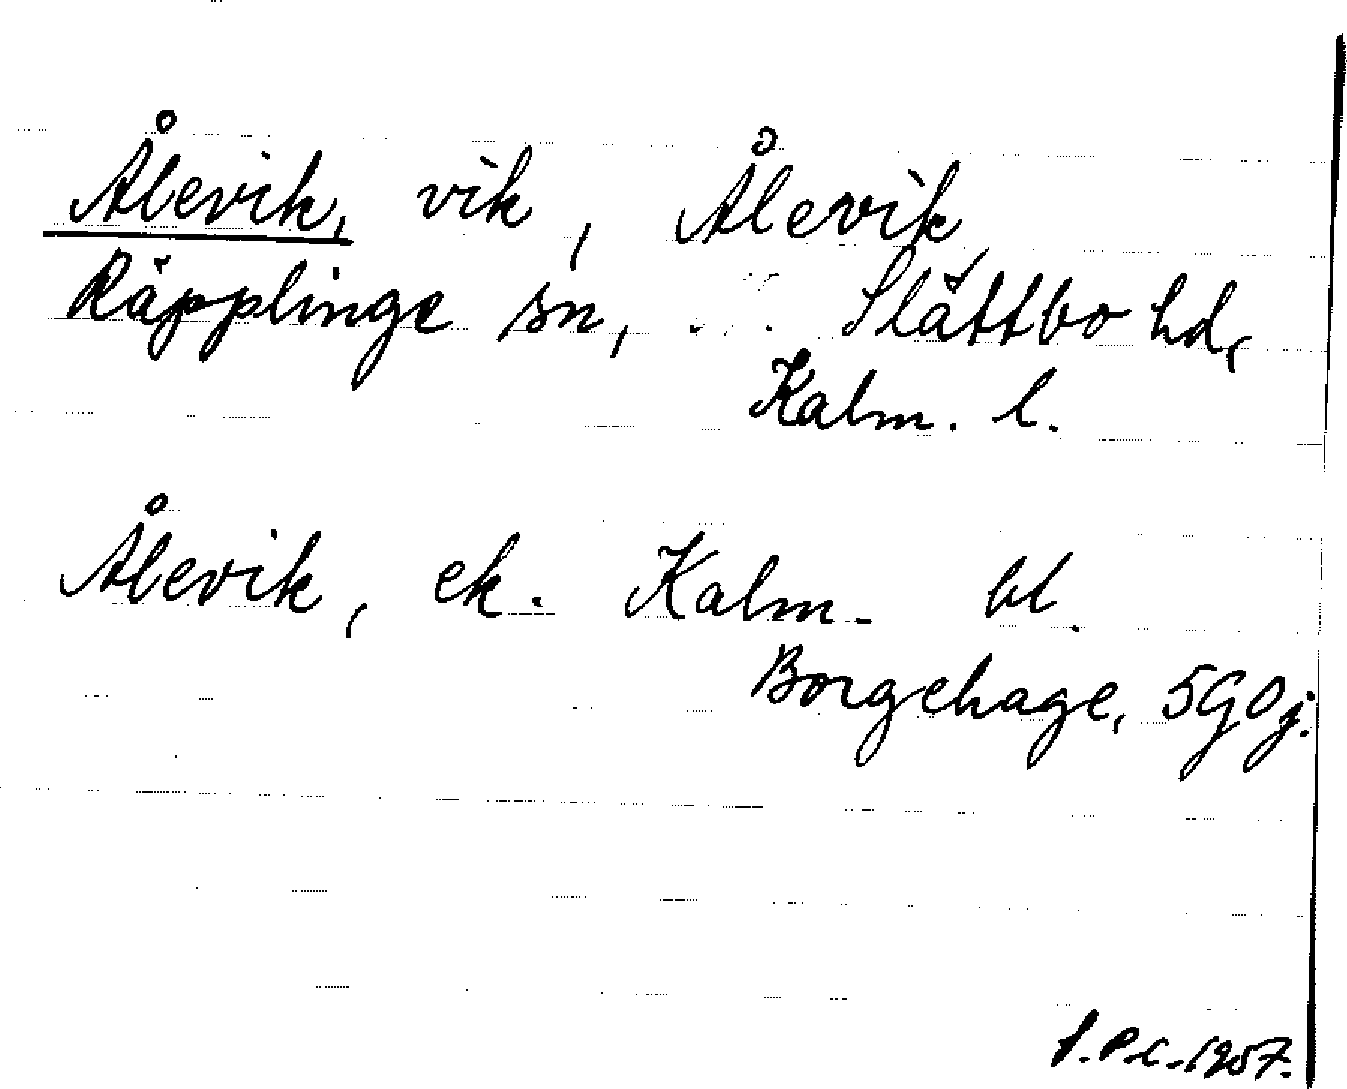 Ålevik, vik, Ålevik
Räpplinge sn, Slättbo hd,
Kalm. l.
Ålevik, ek. Kalm. bl.
Borgehage, 5G0j.
1957.